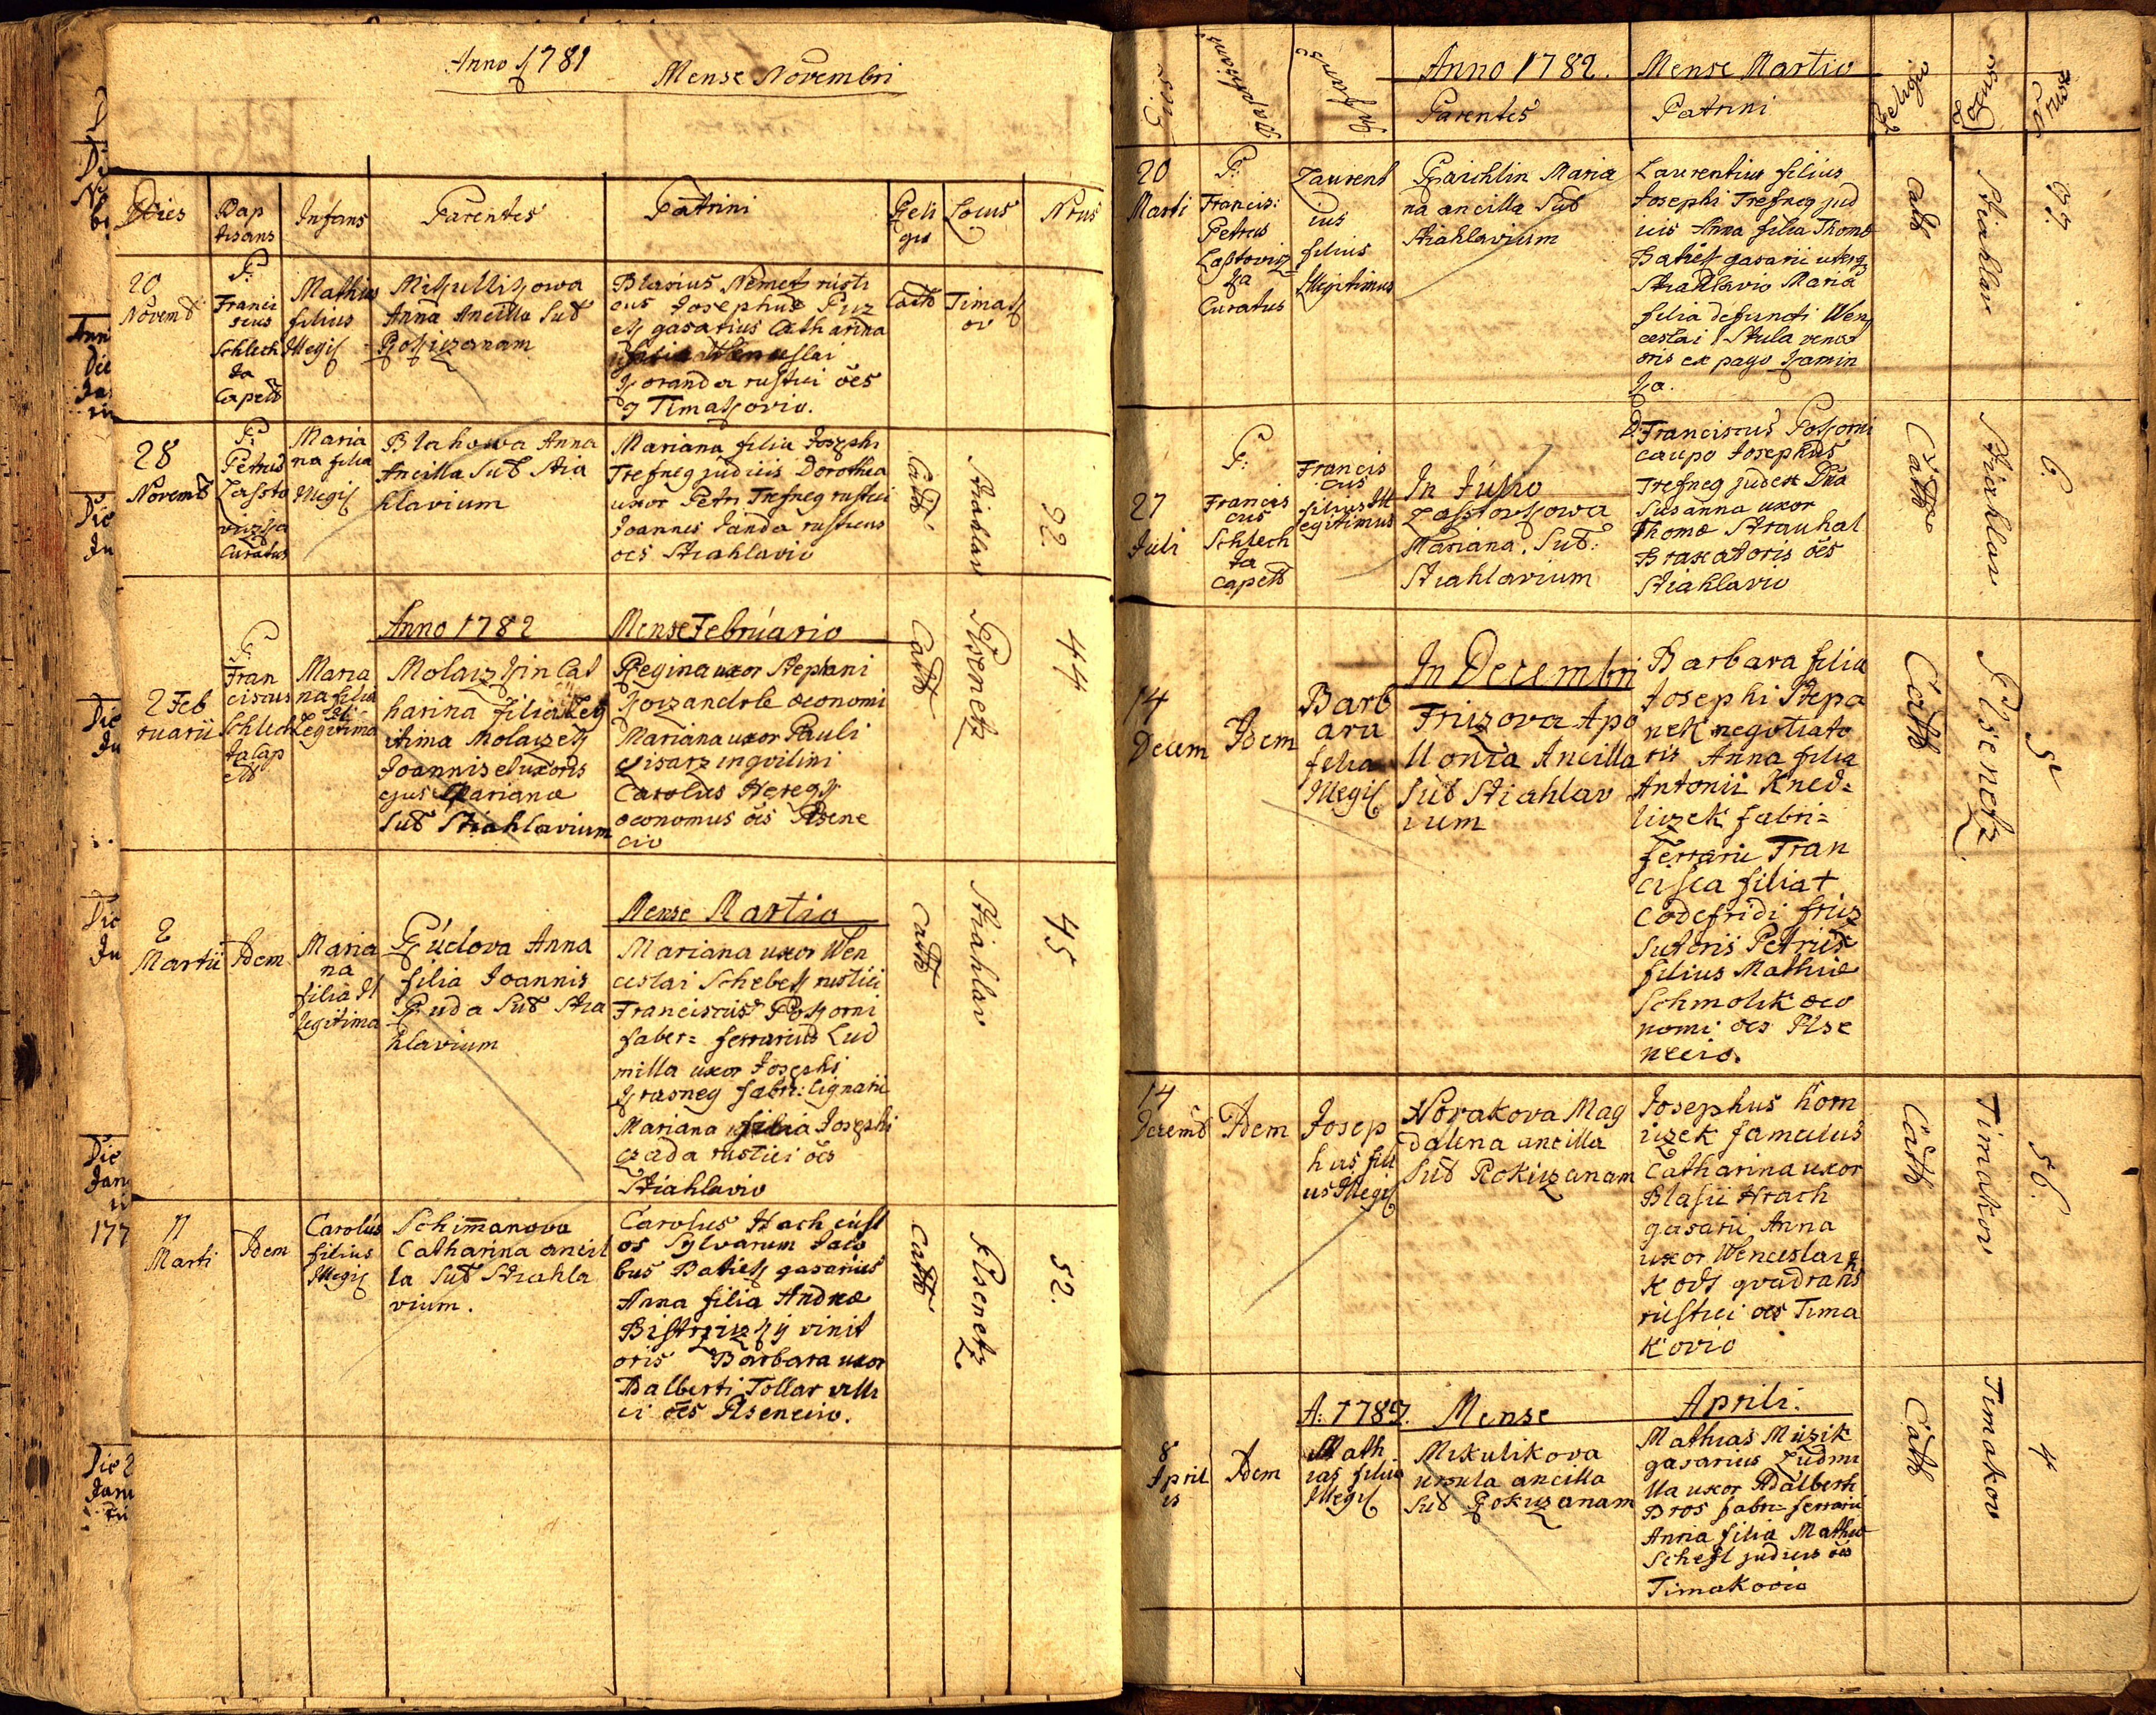 Anno 1781
Mense Novembri
Dies
Bap
tisans
Infans
Parentes
Patrini
Reli
gio
Locus
Nrus
20
Novemb
P:
Franci
scus
Schlech
ta
Capell
Mathias
filius
Illegi
Anna Ancilla Sub
Rokizanam
Blasius Nemetz rusti
cus Josephus
gasarius Catharina
rustici oes
Timakovio.
Cath
Timak
ov
28
Novemb
P:
Petrus
Lassto
viczka
Curatus
Maria
na filia
Illegi
Blahowa Anna
Ancilla Sub Stia
hlavium
Mariana filia Josephi
Trefneg judicis Dorothea
uxor Petri Trefneg rustici
Joannes Janda rusticus
oes Stiahlavio
Cath
Stiahlav
92.
Anno 1782
Mense Februario
2 Feb
ruarii
P:
Fran
ciscus
Schlech
ta Cap
ell
Maria
na filia
Illegitima
Cat
harina filia Leg
itima
Joannis et uxoris
ejus Mariana
Sub Stiahlavium
Regina uxor Stephani
oeconomi
Mariana uxor Pauli
Cisarz inqvilini
Carolus
oeconomus oes Pilsene
cio
Cath
Pilsenetz
44
Mense Martio
2
Martii
Idem
Maria
na
filia Il
legitima
Pudova Anna
filia Joannis
Puda Sub Stia
hlavium
Mariana uxor Wen
ceslai Schebek rustici
Franciscus Pokorni
faber = ferrarius Lud
milla uxor Josephi
Krasneg fabri: lignarii
Mariana filia Josephi
Czada rustici oes
Stiahlavio
Cath
Stiahlav
45
11
Marti
Idem
Carolus
filius
Illegi
Schimanova
Catharina ancil
la Sub Stiahla
vium.
Carolus Hach cust
os Sylvarum Jaco
bus Batiek gasarius
Anna filia Andreæ
Bistrziczkij vinit
oris Barbara uxor
Adalberti Tollar villi
ci oes Pilsenecio.
Cath
Pilsenetz
52.
Dies
Baptisans
Infans
Anno 1782.
Mense Martio
Parentes
Patrini
Religio
Locus
Nrus
20
Marti
P:
Francis:
Petrus
Lastovicz
ka
Curatus
Laurent
ius
filius
Illegitimus
Maria
na ancilla Sub
Stiahlavium
Laurentius filius
Josephi Trefneg jud
icis Anna filia Thomæ
Batiek gasarii uterq
Stiahlavio Maria
filia defuncti Wen
ceslai Skula venat
oris ex pago Kamin
ka.
Cath
Stiahlav
27
Juli
P:
Francis
cus
Schlech
ta
Capell
Francis
cus
filius Ill
egitimus
In Julio
Lasstovkowa
Mariana. Sub:
Stiahlavium
D: Franciscus Pokorni
caupo Josephus
Trefneg judex Dna
Susanna uxor
Thomæ Strauhal
Braxatoris oes
Stiahlavio
Cath
Stiahlav
6.
In Decembri
14
Decem
Idem
Barb
ara
filia
Illegi
Friczova Apo
llonia Ancilla
Sub Stiahlav
ium
Barbara filia
Josephi Stepa
nek negotiato
ris Anna filia
Antonii Kned=
liczek fabri=
ferrarii Fran
cisca filia +
Godefridi fricz
Sutoris Petrus
filius Mathiæ
Schmolik oeco
nomi oes Pilse
necio.
Cath
Pilsenetz
5
14
Decemb
Idem
Josep
hus fili
us Illegi
Novakova Mag
dalena ancilla
Sub Rokiczanam
Josephus horn
iczek famulus
Catharina uxor
Blasii Hrach
gasarii Anna
uxor Wenceslai
Kovs qvadrans
rustici oes Tima
kovio
Cath
Timakov
56.
A: 1789. Mense
Aprili.
8
April
is
Idem
Math
ias filius
Illegi
Mikulikova
Ursula ancilla
Sub Rokizanam
Mathias Muzik
gasarius Ludmi
lla uxor Adalberti
Bros fabri = ferrarii
Anna filia Mathiæ
Schefl judicis oes
Timakovio
Cath
Timakov
4